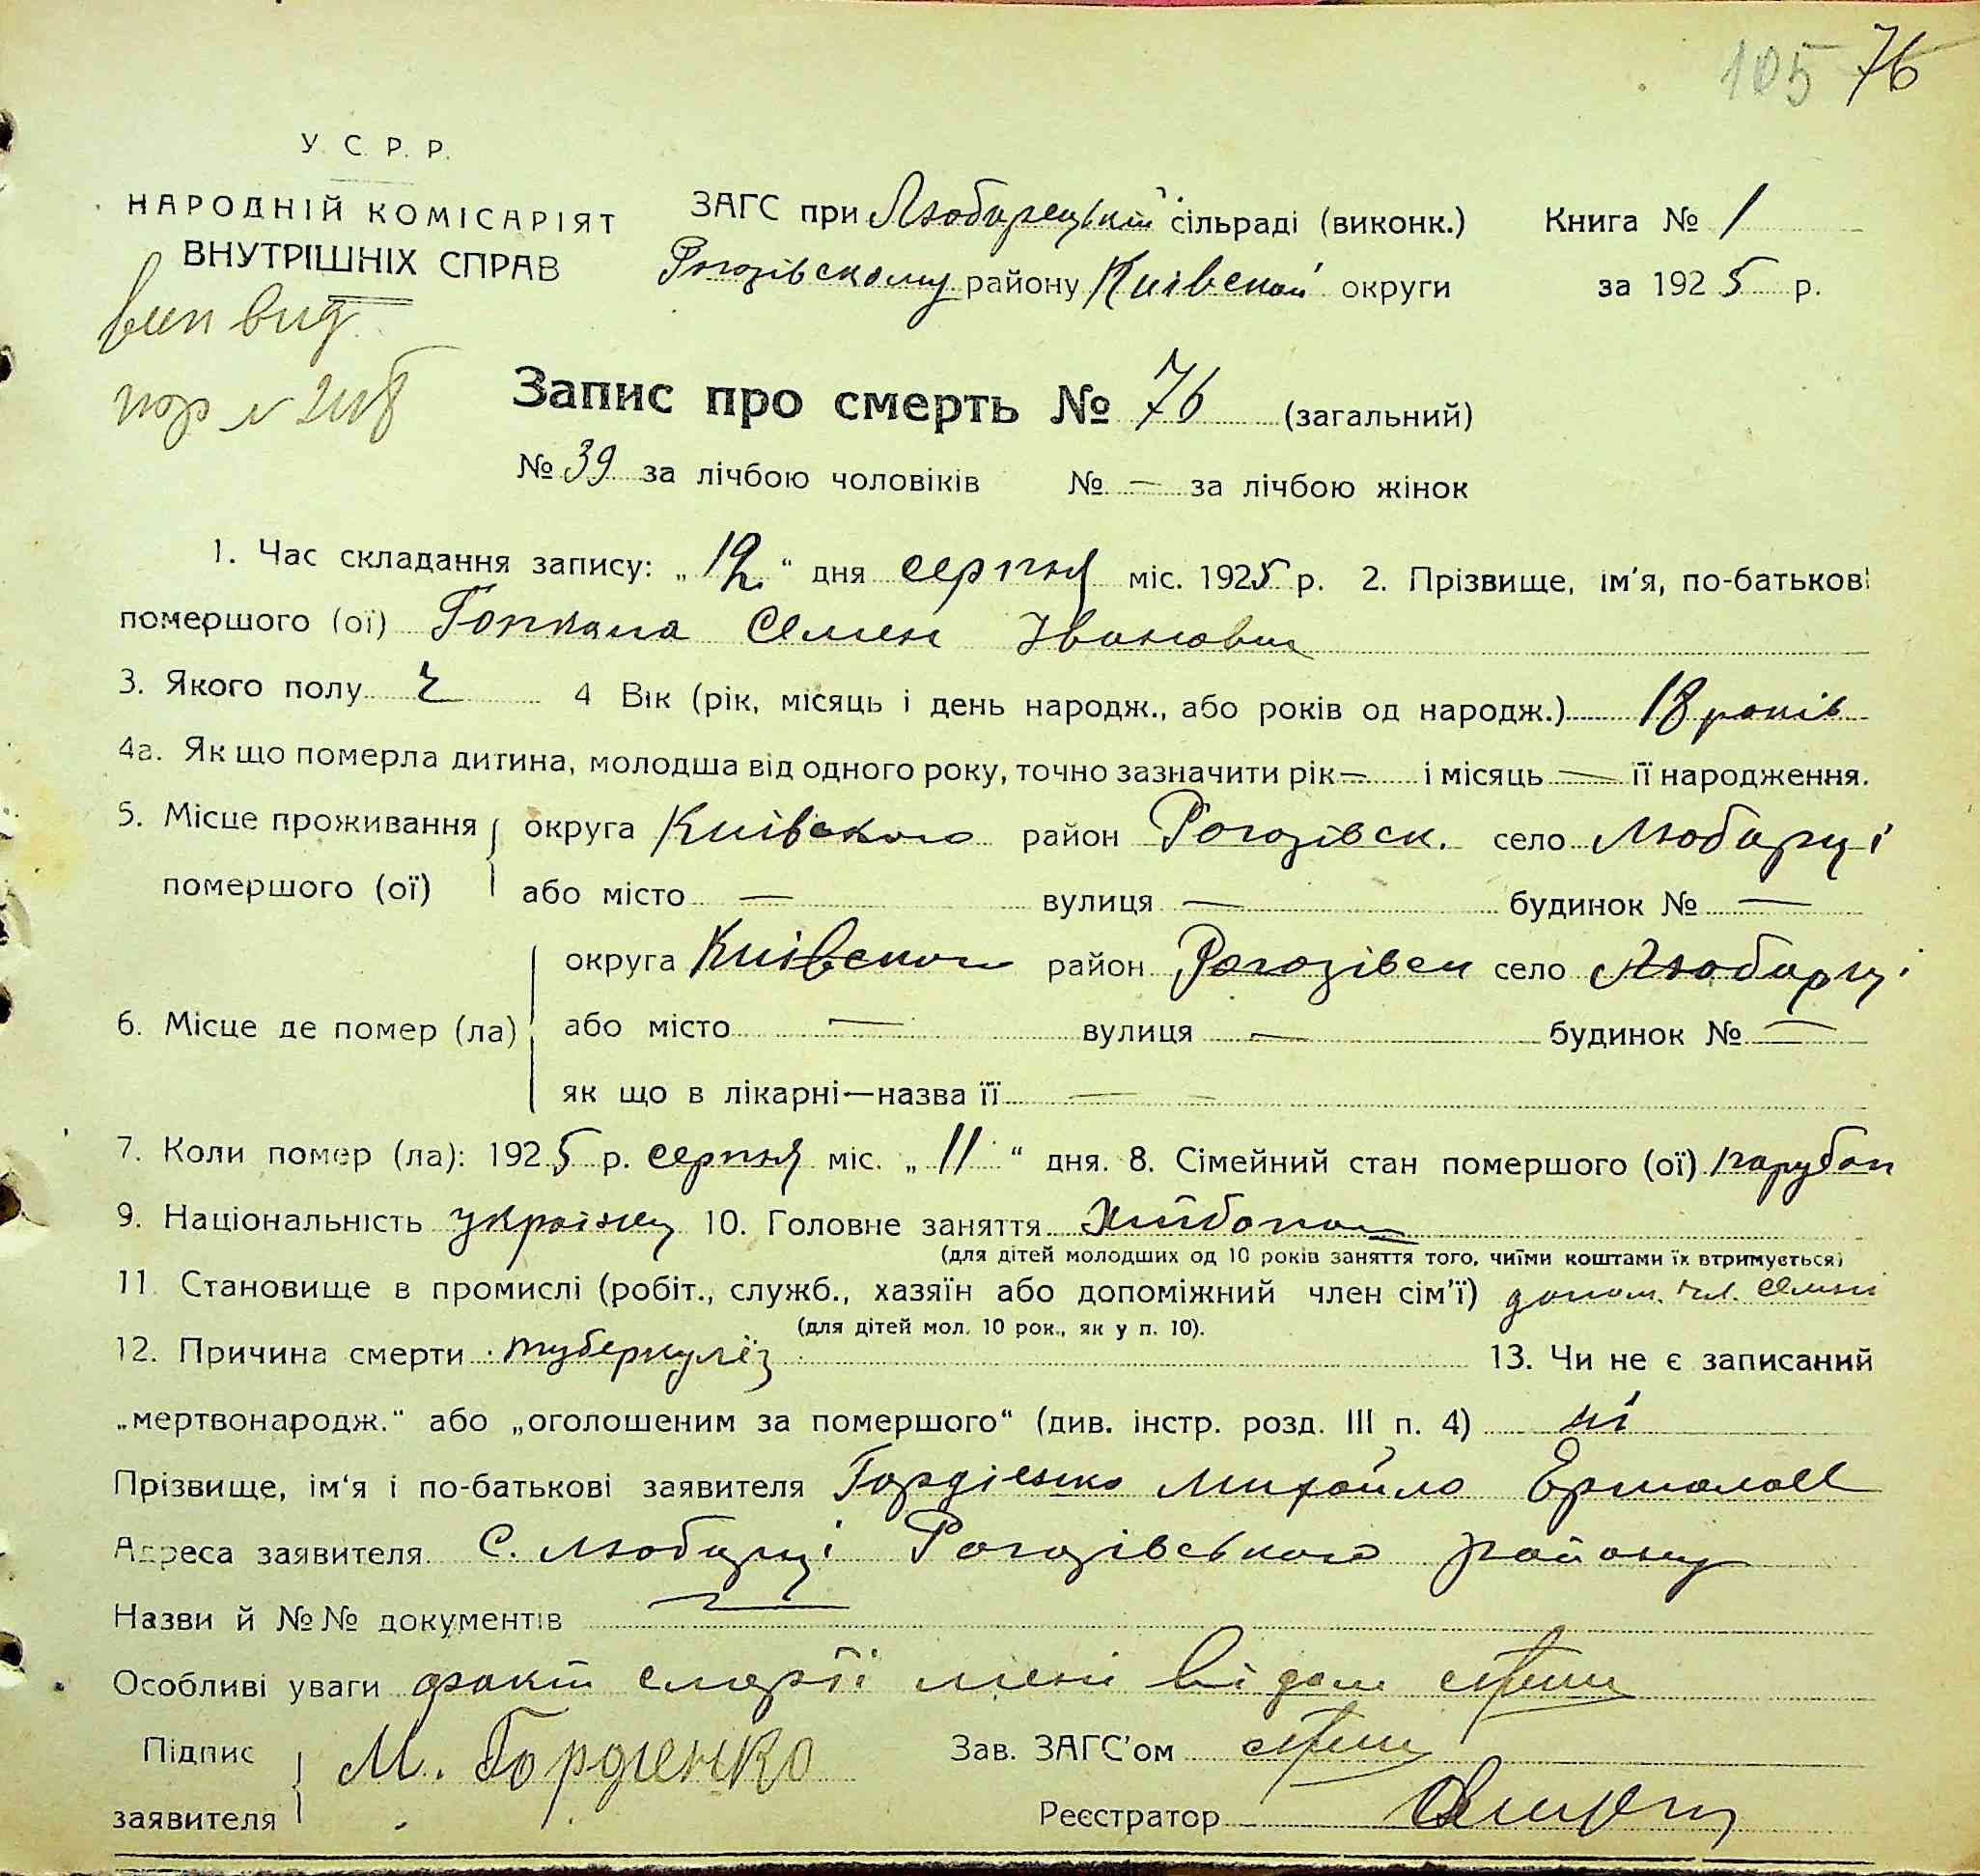 105 76
У. С. Р. Р.
НАРОДНІЙ КОМІСАРІЯТ
ВНУТРІШНІХ СПРАВ
ЗАГС при Любарецькій сільраді (виконк.) Книга № 1
Рогозівскому району Київскої округи за 1925 р.
Запис про смерть № 76 (загальний)
№ 39 за лічбою чоловіків № — за лічбою жінок
1. Час складання запису: „12“ дня серпня міс. 1925 р. 2. Прізвище, ім'я, по-батькові
помершого (ої) Семен Іванович
3. Якого полу ч 4 Вік (рік, місяць і день народж., або років од народж.) 18 років
4а. Як що померла дитина, молодша від одного року, точно зазначити рік — і місяць — її народження.
5. Місце проживання округа Київского район Рогозівск. село Любарці
помершого (ої) або місто — вулиця — будинок № —
округа Київского район Рогозівск село Любарці
6. Місце де помер (ла) або місто — вулиця — будинок № —
як що в лікарні—назва її —
7. Коли помер (ла): 1925 р. серпня міс. „11“ дня. 8. Сімейний стан помершого (ої) парубок
9. Національність українец 10. Головне заняття
(для дітей молодших од 10 років заняття того, чиїми коштами їх втримується)
11. Становище в промислі (робіт., служб., хазяїн або допоміжний член сім'ї) допом. чл. семьї
(для дітей мол. 10 рок., як у п. 10).
12. Причина смерти туберкульоз 13. Чи не є записаний
„мертвонародж.“ або „оголошеним за помершого“ (див. інстр. розд. III п. 4) ні
Прізвище, ім'я і по-батькові заявителя Гордієнко Михайло
Адреса заявителя С. Любарці Рогозівського району
Назви й №№ документів —
Особливі уваги факт смерті мені відом
Підпис М. Гордіенко Зав. ЗАГС'ом
заявителя Реєстратор